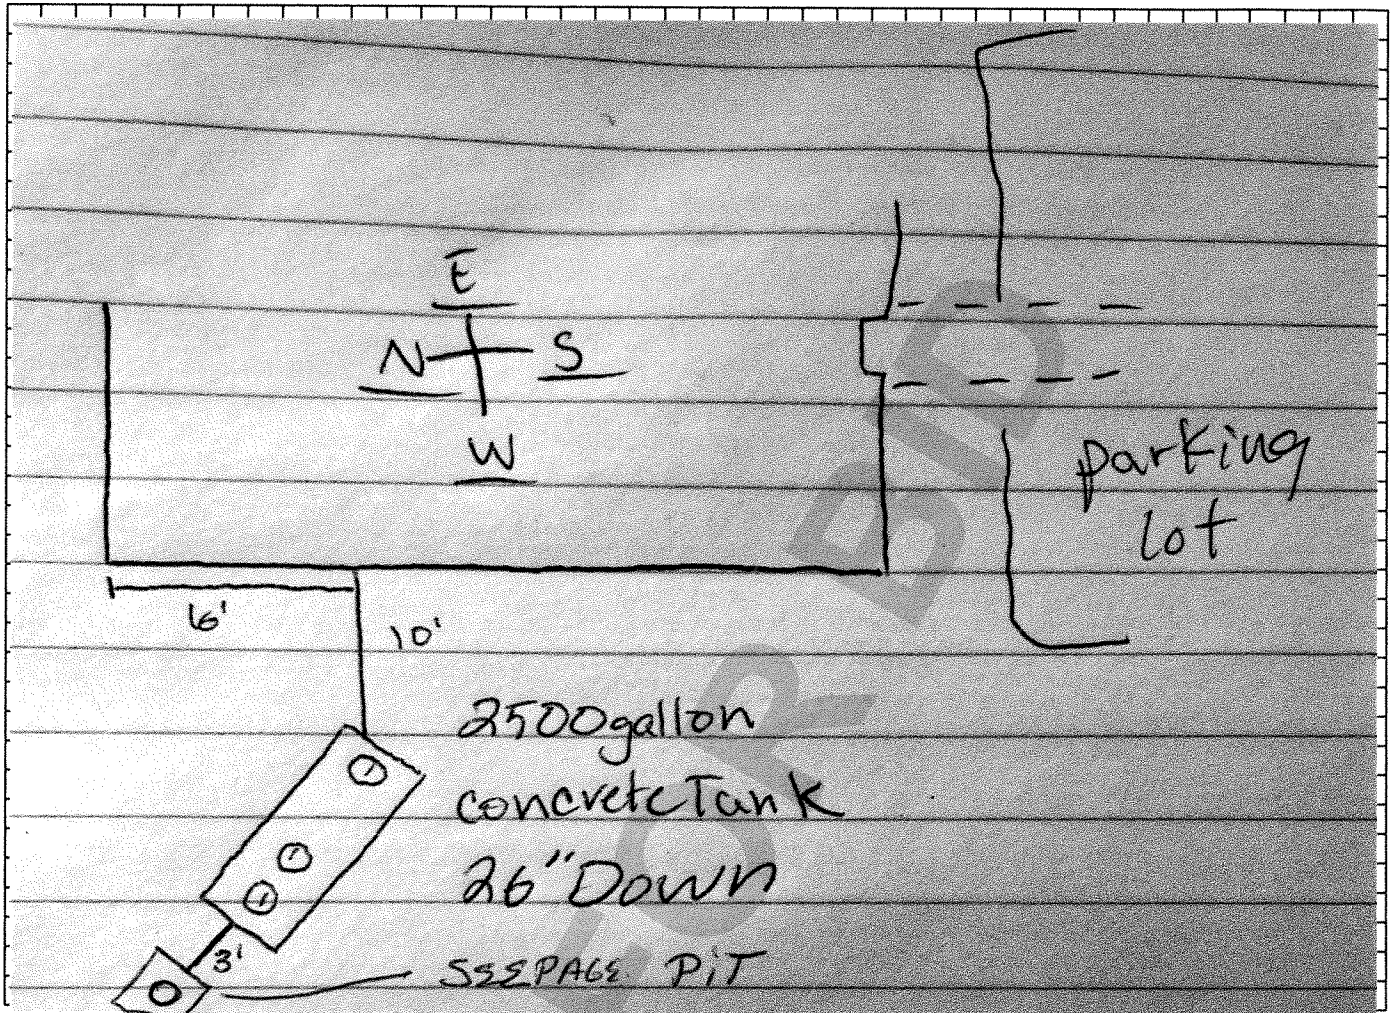 E
N S
W
parking
lot
16'
10'
2500gallon
concrete Tank
26" Down
3'
SEEPAGE PiT
FOR BID